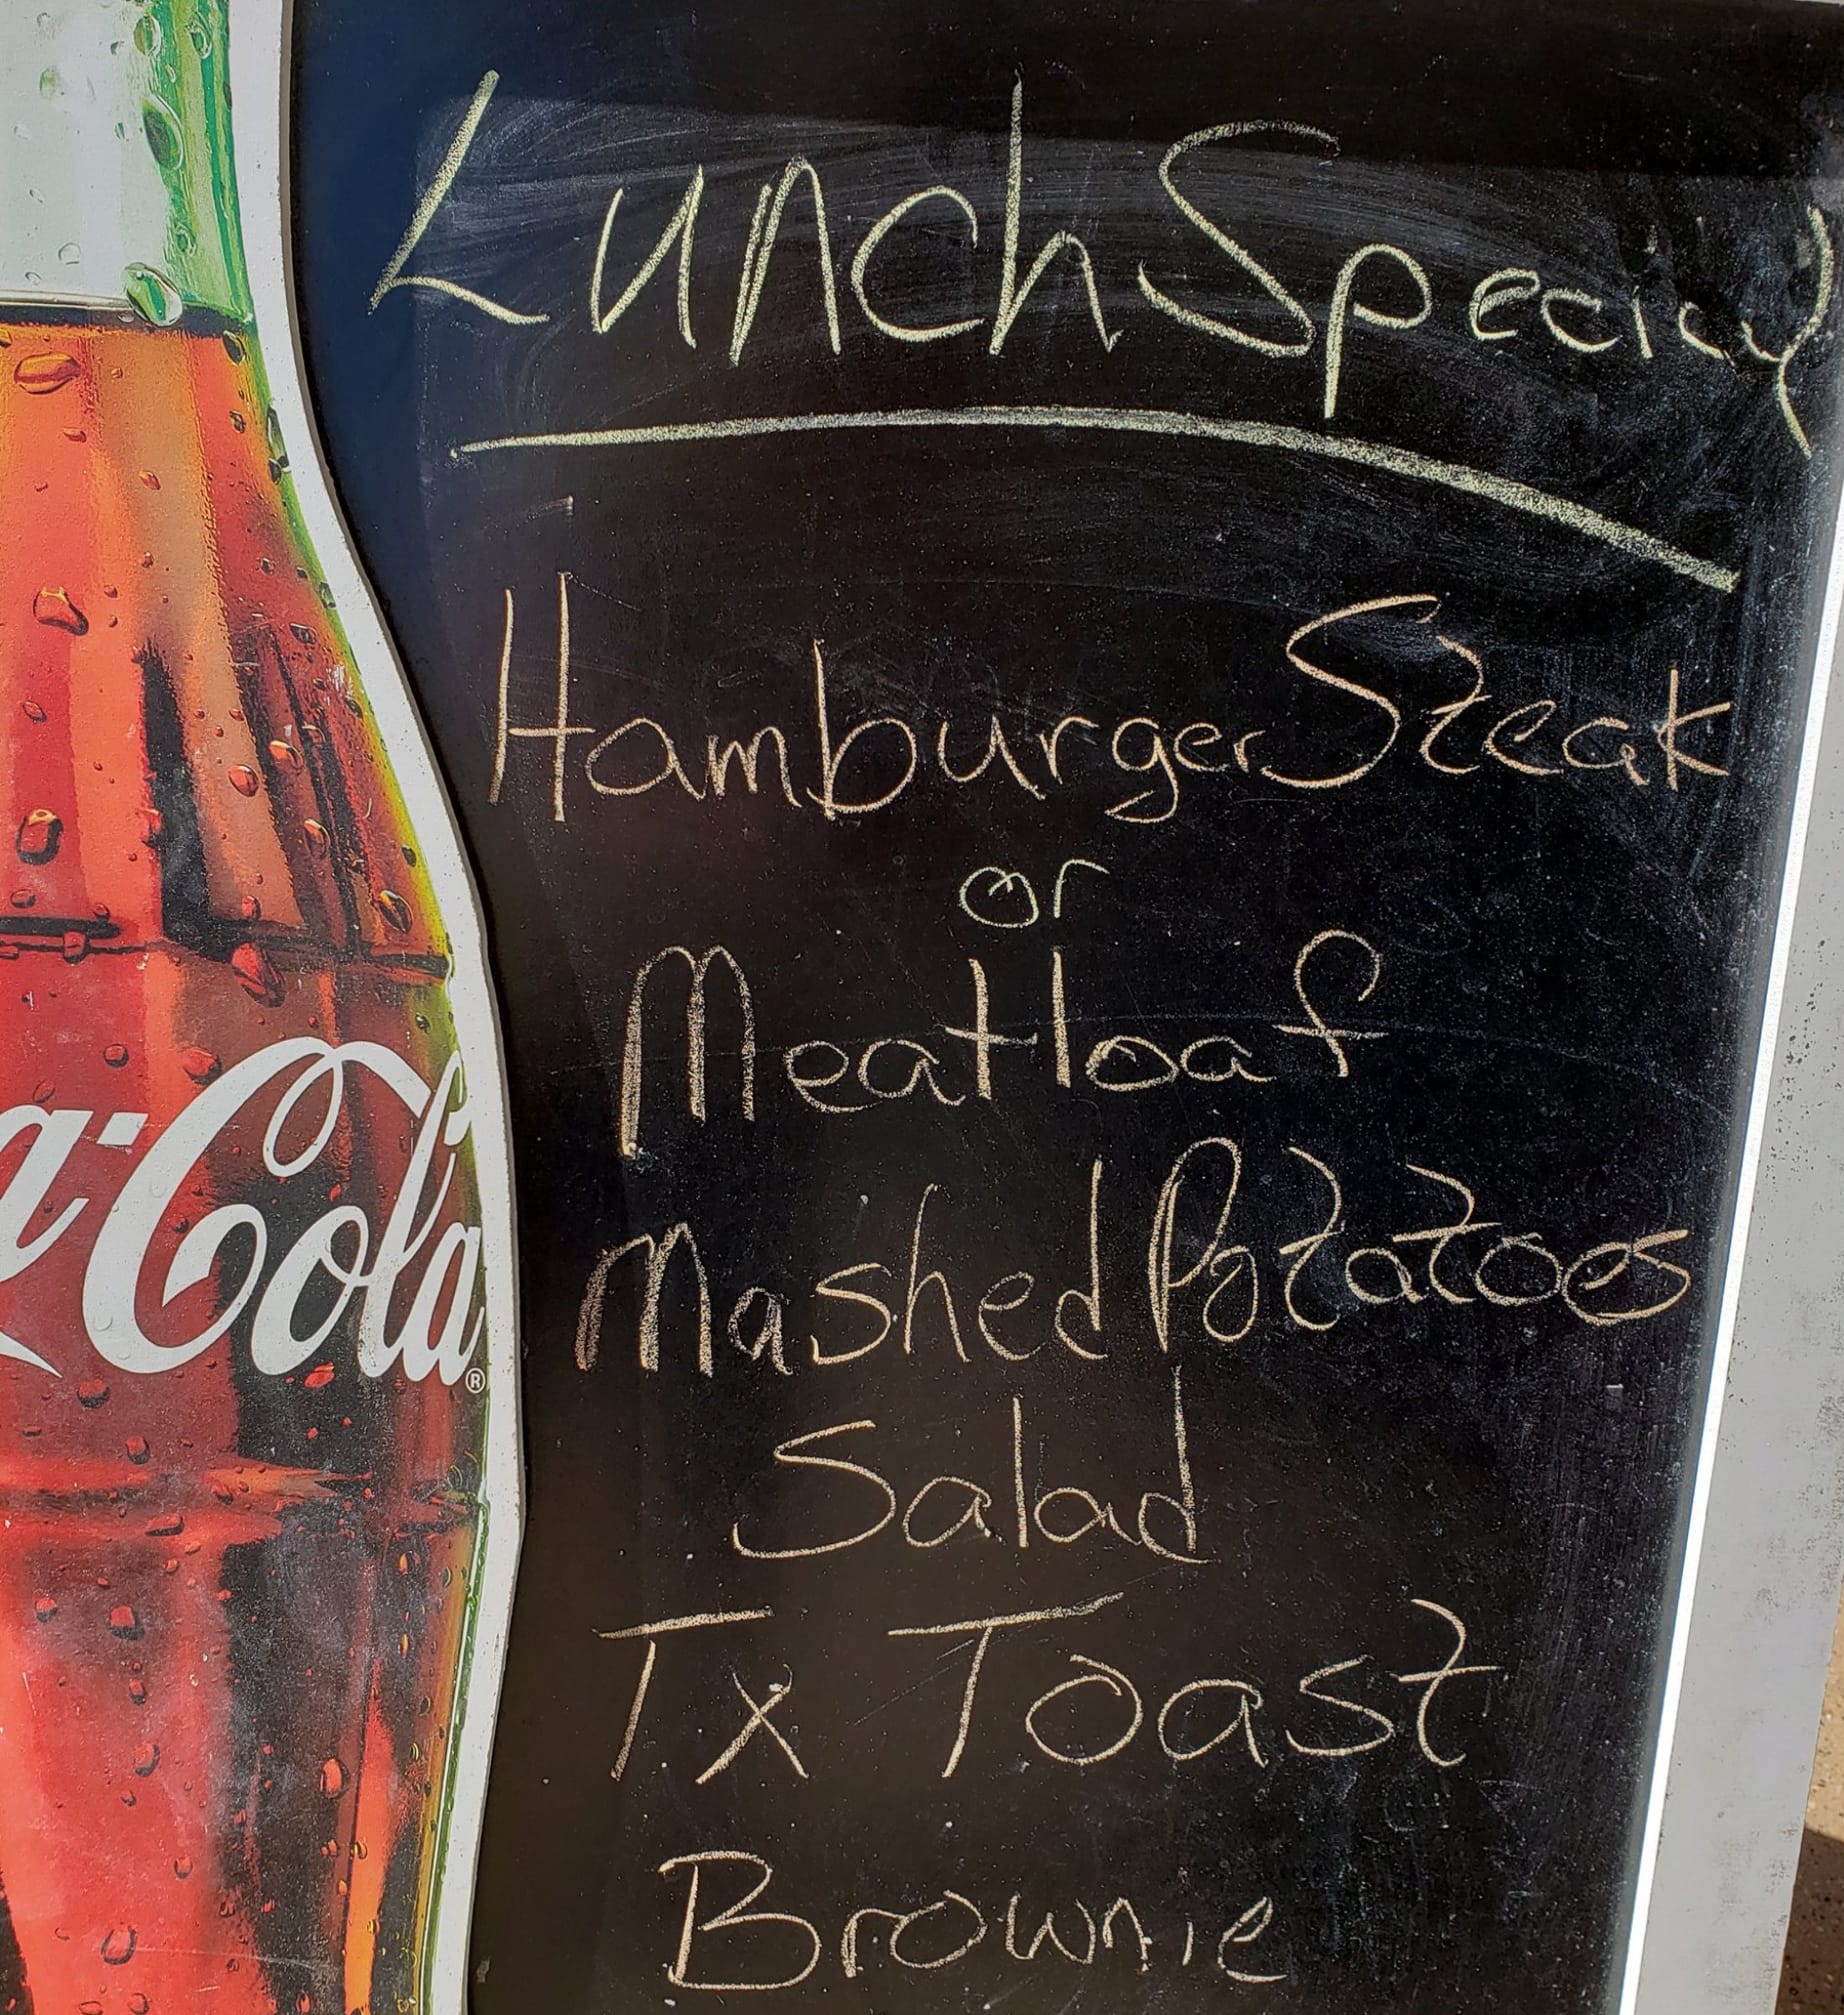 Lunch Special
Hamburger Steak
or
Meatloaf
Mashed Potatoes
Salad
Tx Toast
Brownie
a-Cola®